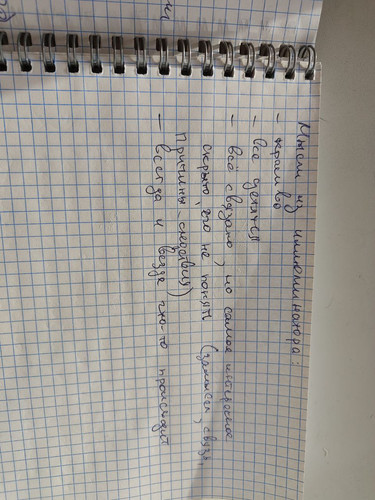 Мысли из иллюминатора:
- красиво
- все делятся
- всё связано, но самое интересное
скрыто, его не понять (замысел, связь,
причины-следствия)
- всегда и везде что-то происходит